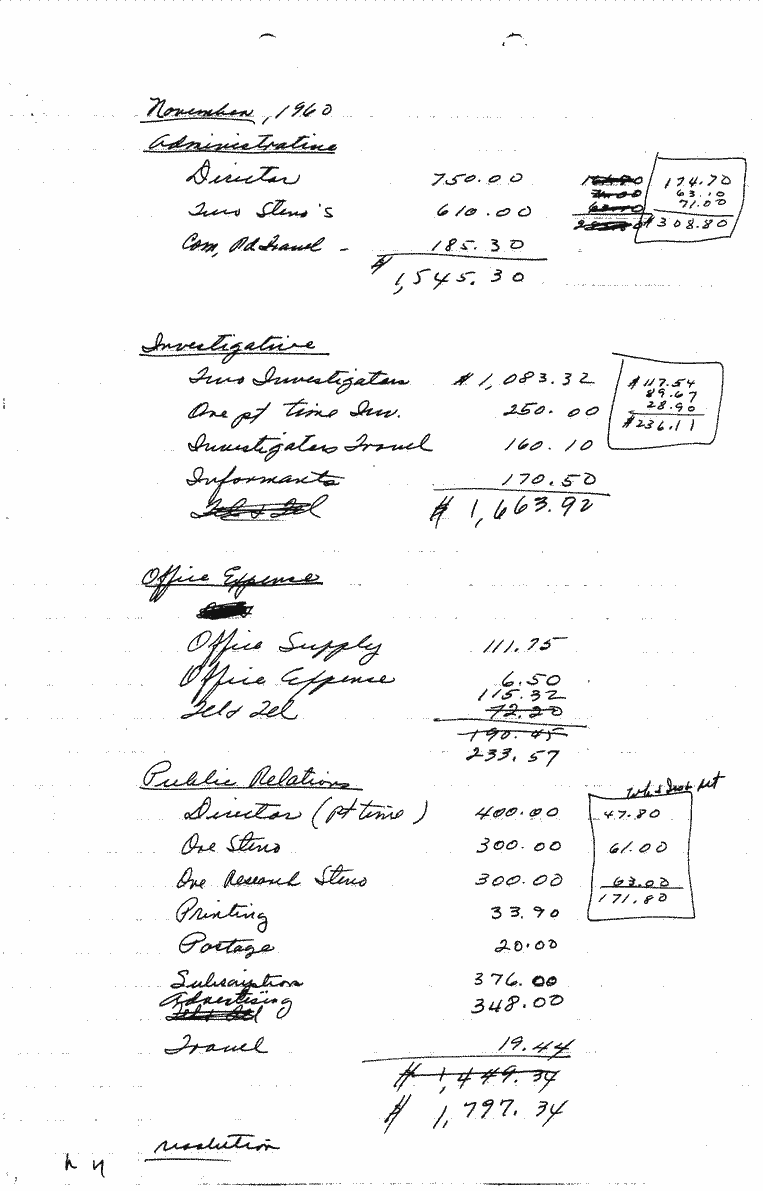 November, 1960
Administrative
Director 750.00 174.70
63.10
Two Steno's 610.00 71.00
$308.80
Com, Pd Travel - 185.30
$1,545.30
Investigative
Two Investigators $1,083.32 $117.54
89.67
One pt time Inv. 250.00 28.90
$236.11
Investigators Travel 160.10
Informants 170.50
Tel & Tel $1,663.92
Office Expense
Office Supply 111.75
Office Expense 6.50
115.32
Tel & Tel 72.20
190.45
233.57
Public Relations
Director (pt time) 400.00 47.80
One Steno 300.00 61.00
One Research Steno 300.00 63.00
171.80
Printing 33.90
Postage 20.00
Subscription 376.00
Advertising 348.00
Tel & Tel
Travel 19.44
$1,449.34
$1,797.34
resolution